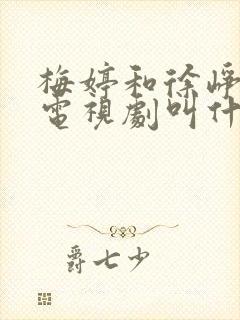 梅婷和徐崢
電視劇叫什
爵七少